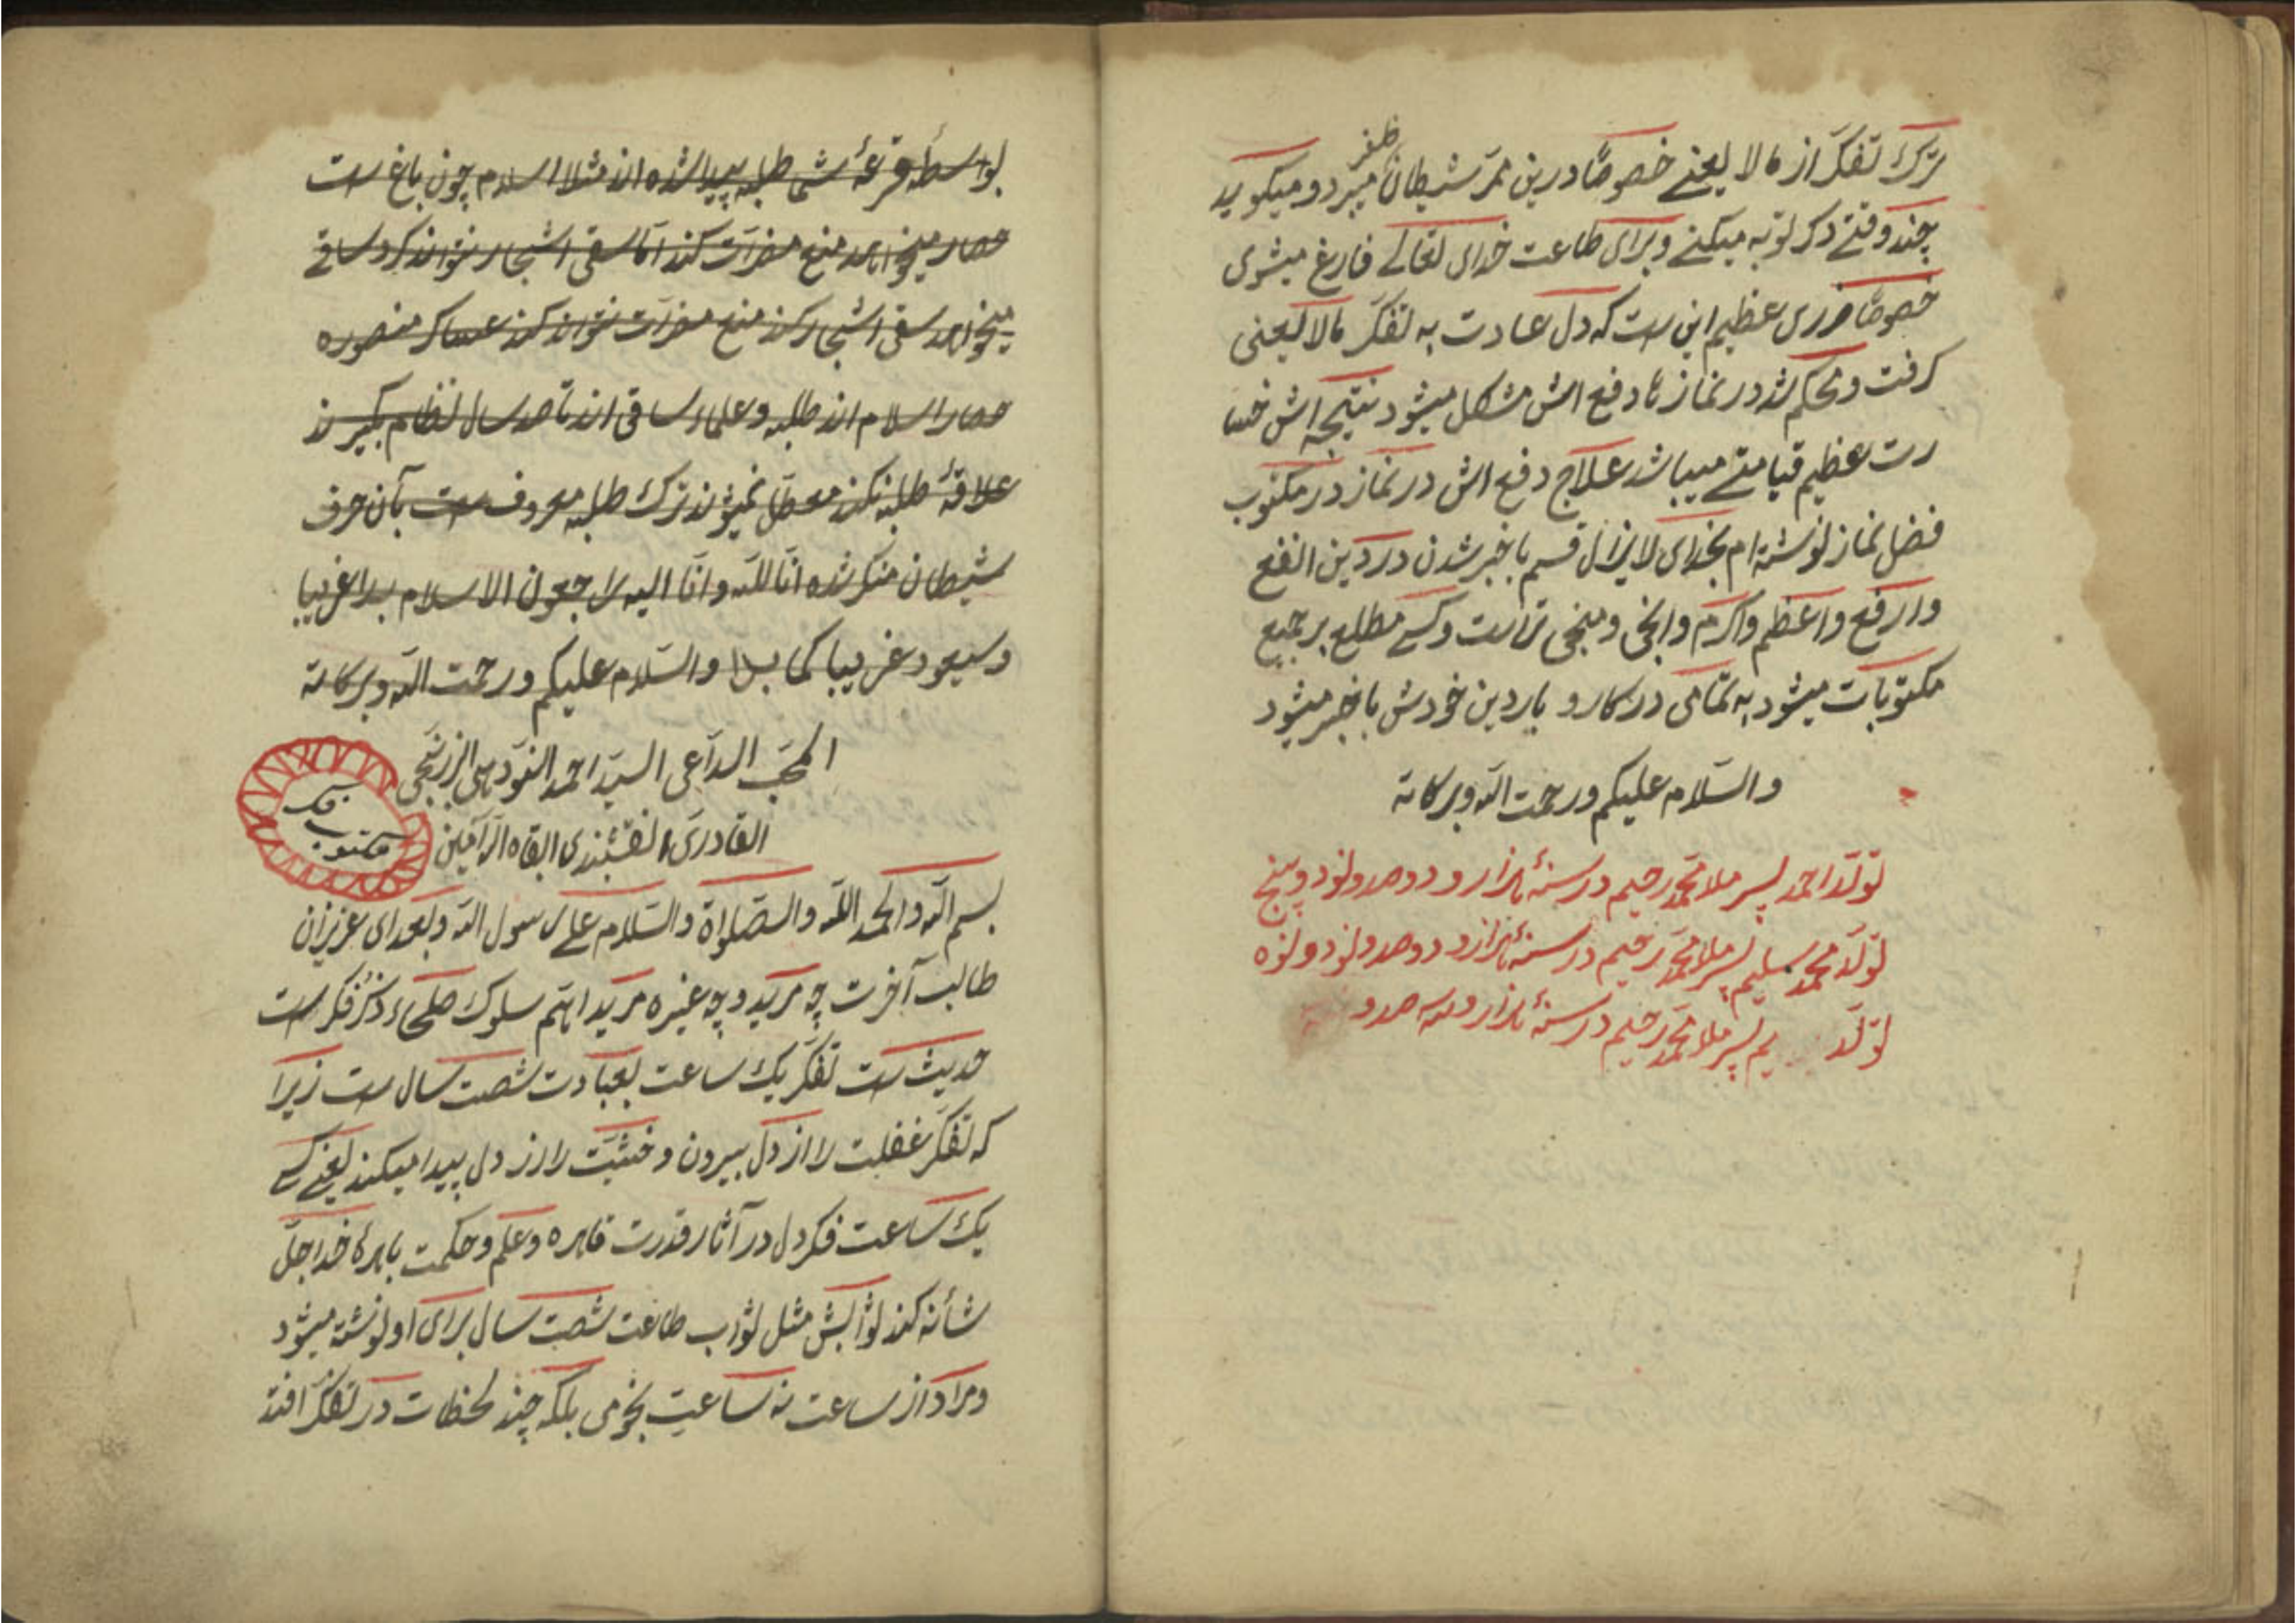 ترك تفكّر از مالا يعنے خصوصًا درين ممرّ شيطان ظفر ميبرد و ميكويد
چند وقتے ذكر توبه ميكنے و براى طاعت خداى تعالے فارغ ميشوى
خصوصًا ضررى عظيم اين ست كه دل عادت به تفكّر مالا يعنى
كرفت و محكم شد در نمازها دفع اش مشكل ميشود نتيجه اش خسا
رت عظيم قيامتے ميباشد علاج دفع اش در نماز در مكتوب
فضل نماز نوشته ام بخداى لايزال قسم با خبر شدن در دين انفع
و ارفع و اعظم و اكرم و انجى و منجى تر است و كسے مطلع بر جميع
مكتوبات ميشود به تمّامى در كار و بار دين خودش با خبر ميشود
والسّلام عليكم ورحمت الله وبركاته
تولّد احمد پسر ملا محمّد رحيم در سنۀ هزار و دوصد و نود و پنج
تولّد محمد سليم پسر ملا محمّد رحيم در سنۀ هزار و دوصد و نود و نوه
تولّد يم پسر ملا محمّد رحيم در سنۀ هزار و سه صد و
بواسطۀ قرعۀ شما طلبه پيدا شده اند مثلا اسلام چون باغ ست
حصار ميخواهد منع مضرّات كند امّا سقى اشجار نتواند كرد ساقے
ميخواهد سقى اشجار كند منع مضرّات نتواند كند عساكر منصوره
حصار اسلام اند طلبه و علماء ساقى اند تا صد سال نظام بكيرند
علاقۀ طلبه نكند معطّل نميشوند ترك طلبه معروف ست بآن حرف
شيطان منكر شده انّا للّه وانّا اليه راجعون الاسلام بدا غريبا
وسيعود غريبا كما بدا والسّلام عليكم ورحمت الله وبركاته
المحبّ الداعى السيّد احمد النقودهى البرزنجى
القادرى النقشبندى ابقاه الله آمين
بسم الله والحمد اللّه والصّلواة والسّلام على رسول الله وبعد اى عزيزان
طالب آخرت چه مريد و چه غيره مريد اهتم سلوك صلحاء ذكر فكر ست
حديث ست تفكّر يك ساعت بعبادت شصت سال ست زيرا
كه تفكّر غفلت را از دل بيرون و خشيّت را در دل پيدا ميكند يعنے كسے
يك ساعت فكر دل در آثار قدرت قاهره و علم و حكمت باهرۀ خدا جلّ
شأنه كند ثوابش مثل ثواب طاعت شصت سال براى او نوشته ميشود
و مراد از ساعت نه ساعت نجومى بلكه چند لحظات در تفكّر افتد